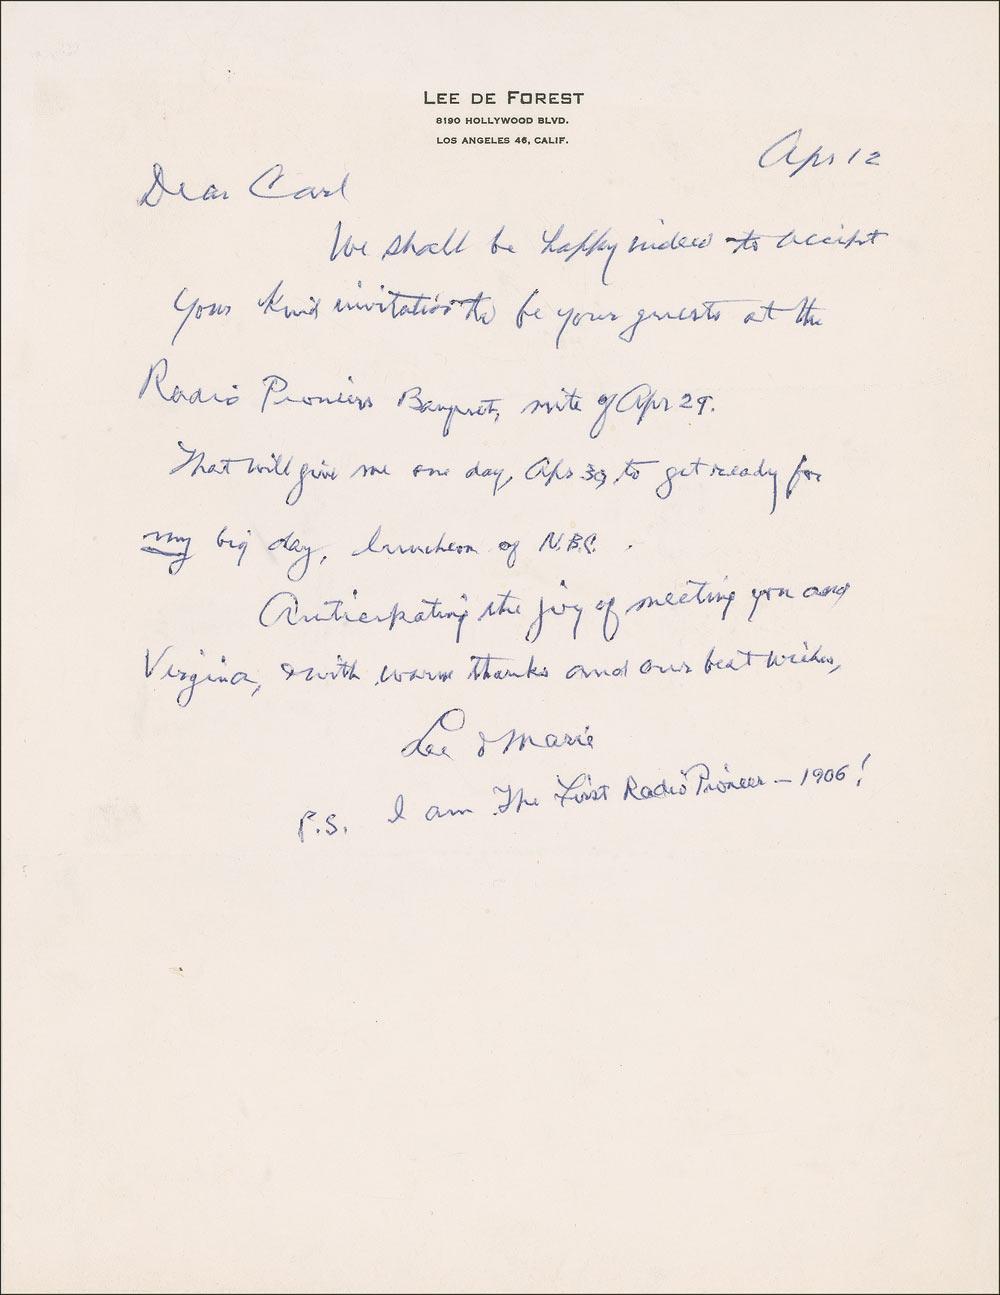 LEE DE FOREST
8190 HOLLYWOOD BLVD.
LOS ANGELES 46, CALIF.
Apr 12
Dear Carl
We shall be happy indeed to accept
your kind invitation to be your guests at the
Radio Pioneers Banquet, nite of Apr 29.
That will give me one day, Apr 30, to get ready for
my big day, luncheon of N.B.C.
Anticipating the joy of meeting you and
Virginia, & with warm thanks and our best wishes,
Lee & Marie
P.S. I am The First Radio Pioneer — 1906!